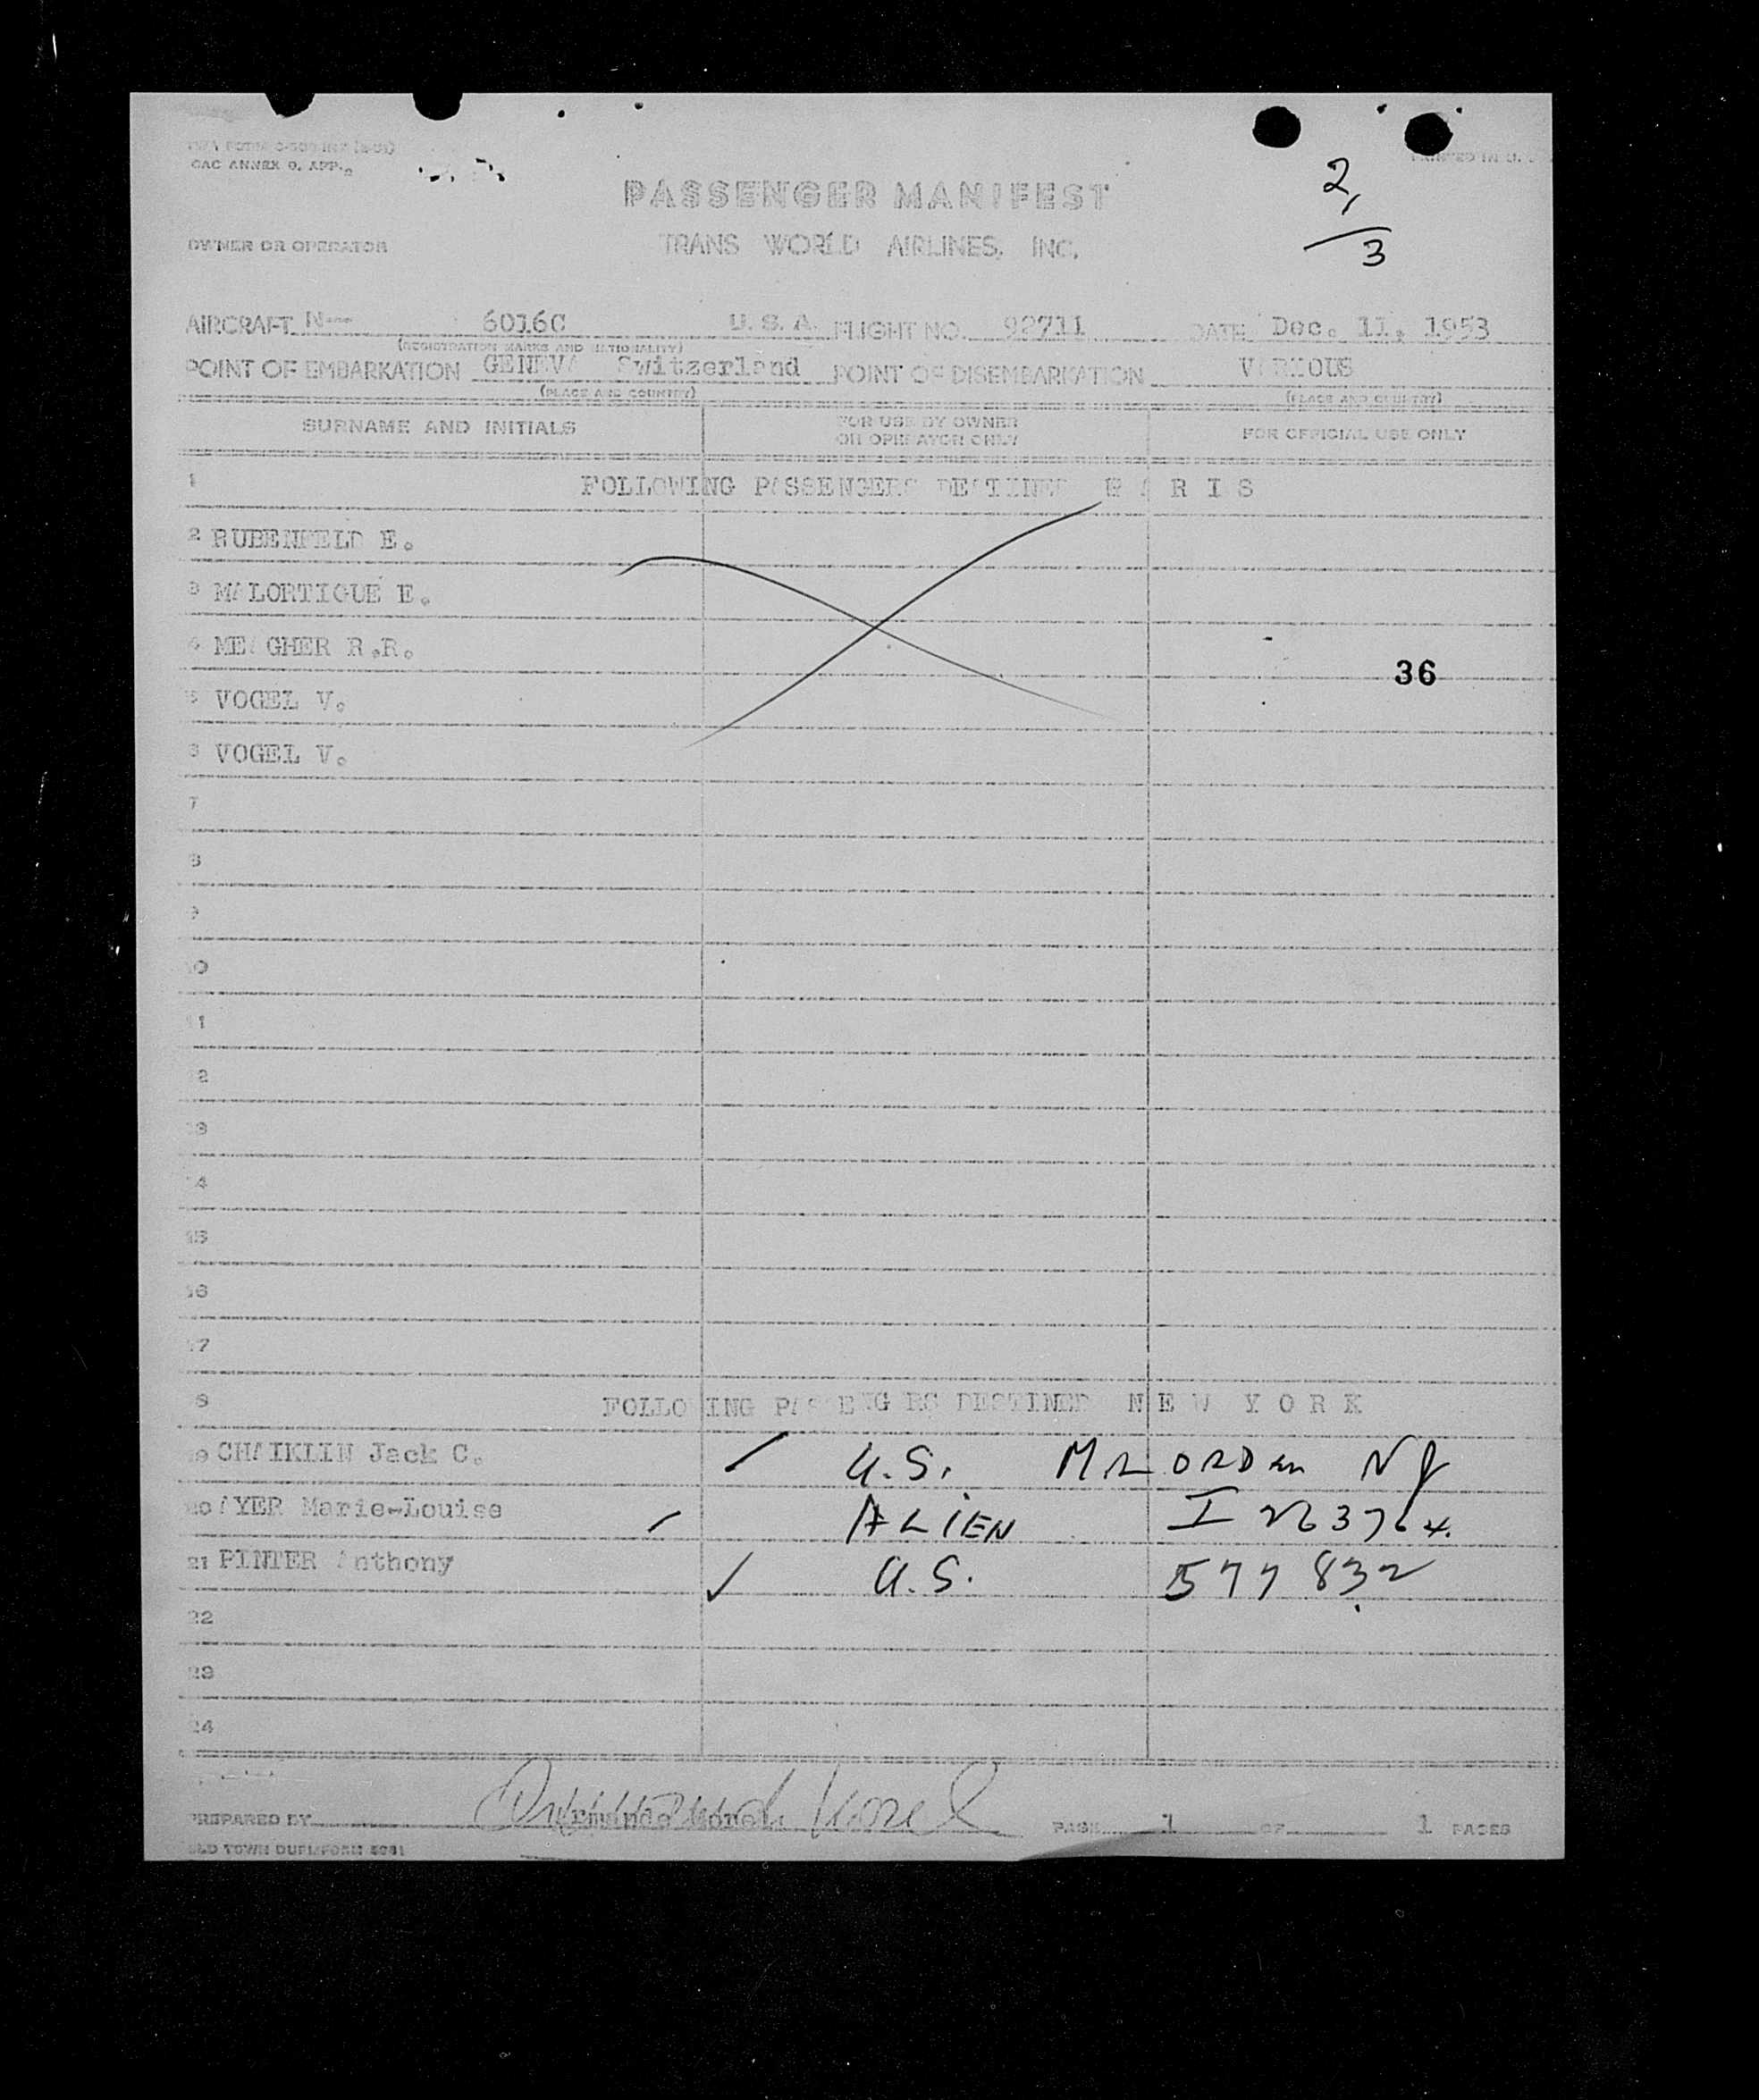 ICAO ANNEX 9, APP.
PRINTED IN U.
2,
3
PASSENGER MANIFEST
OWNER OR OPERATOR TRANS WORLD AIRLINES, INC.
AIRCRAFT N--- 6016C U.S.A. FLIGHT NO. 92711 DATE Dec. 11, 1953
(REGISTRATION MARKS AND NATIONALITY)
POINT OF EMBARKATION GENEVA Switzerland POINT OF DISEMBARKATION VARIOUS
(PLACE AND COUNTRY) (PLACE AND COUNTRY)
SURNAME AND INITIALS FOR USE BY OWNER OR OPERATOR ONLY FOR OFFICIAL USE ONLY
1 FOLLOWING PASSENGERS DESTINED P A R I S
2 RUBENFELD E.
3 MALORTIGUE E.
4 MEAGHER R.R.
36
5 VOGEL V.
6 VOGEL V.
7
8
9
10
11
12
13
14
15
16
17
18 FOLLOWING PASSENGERS DESTINED N E W Y O R K
19 CHAIKLIN Jack C. U.S. NJ
20 AYER Marie-Louise ALIEN I 263764
21 PINTER Anthony ✓ U.S. 577832
22
23
24
PREPARED BY PAGE 1 OF 1 PAGES
OLD TOWN